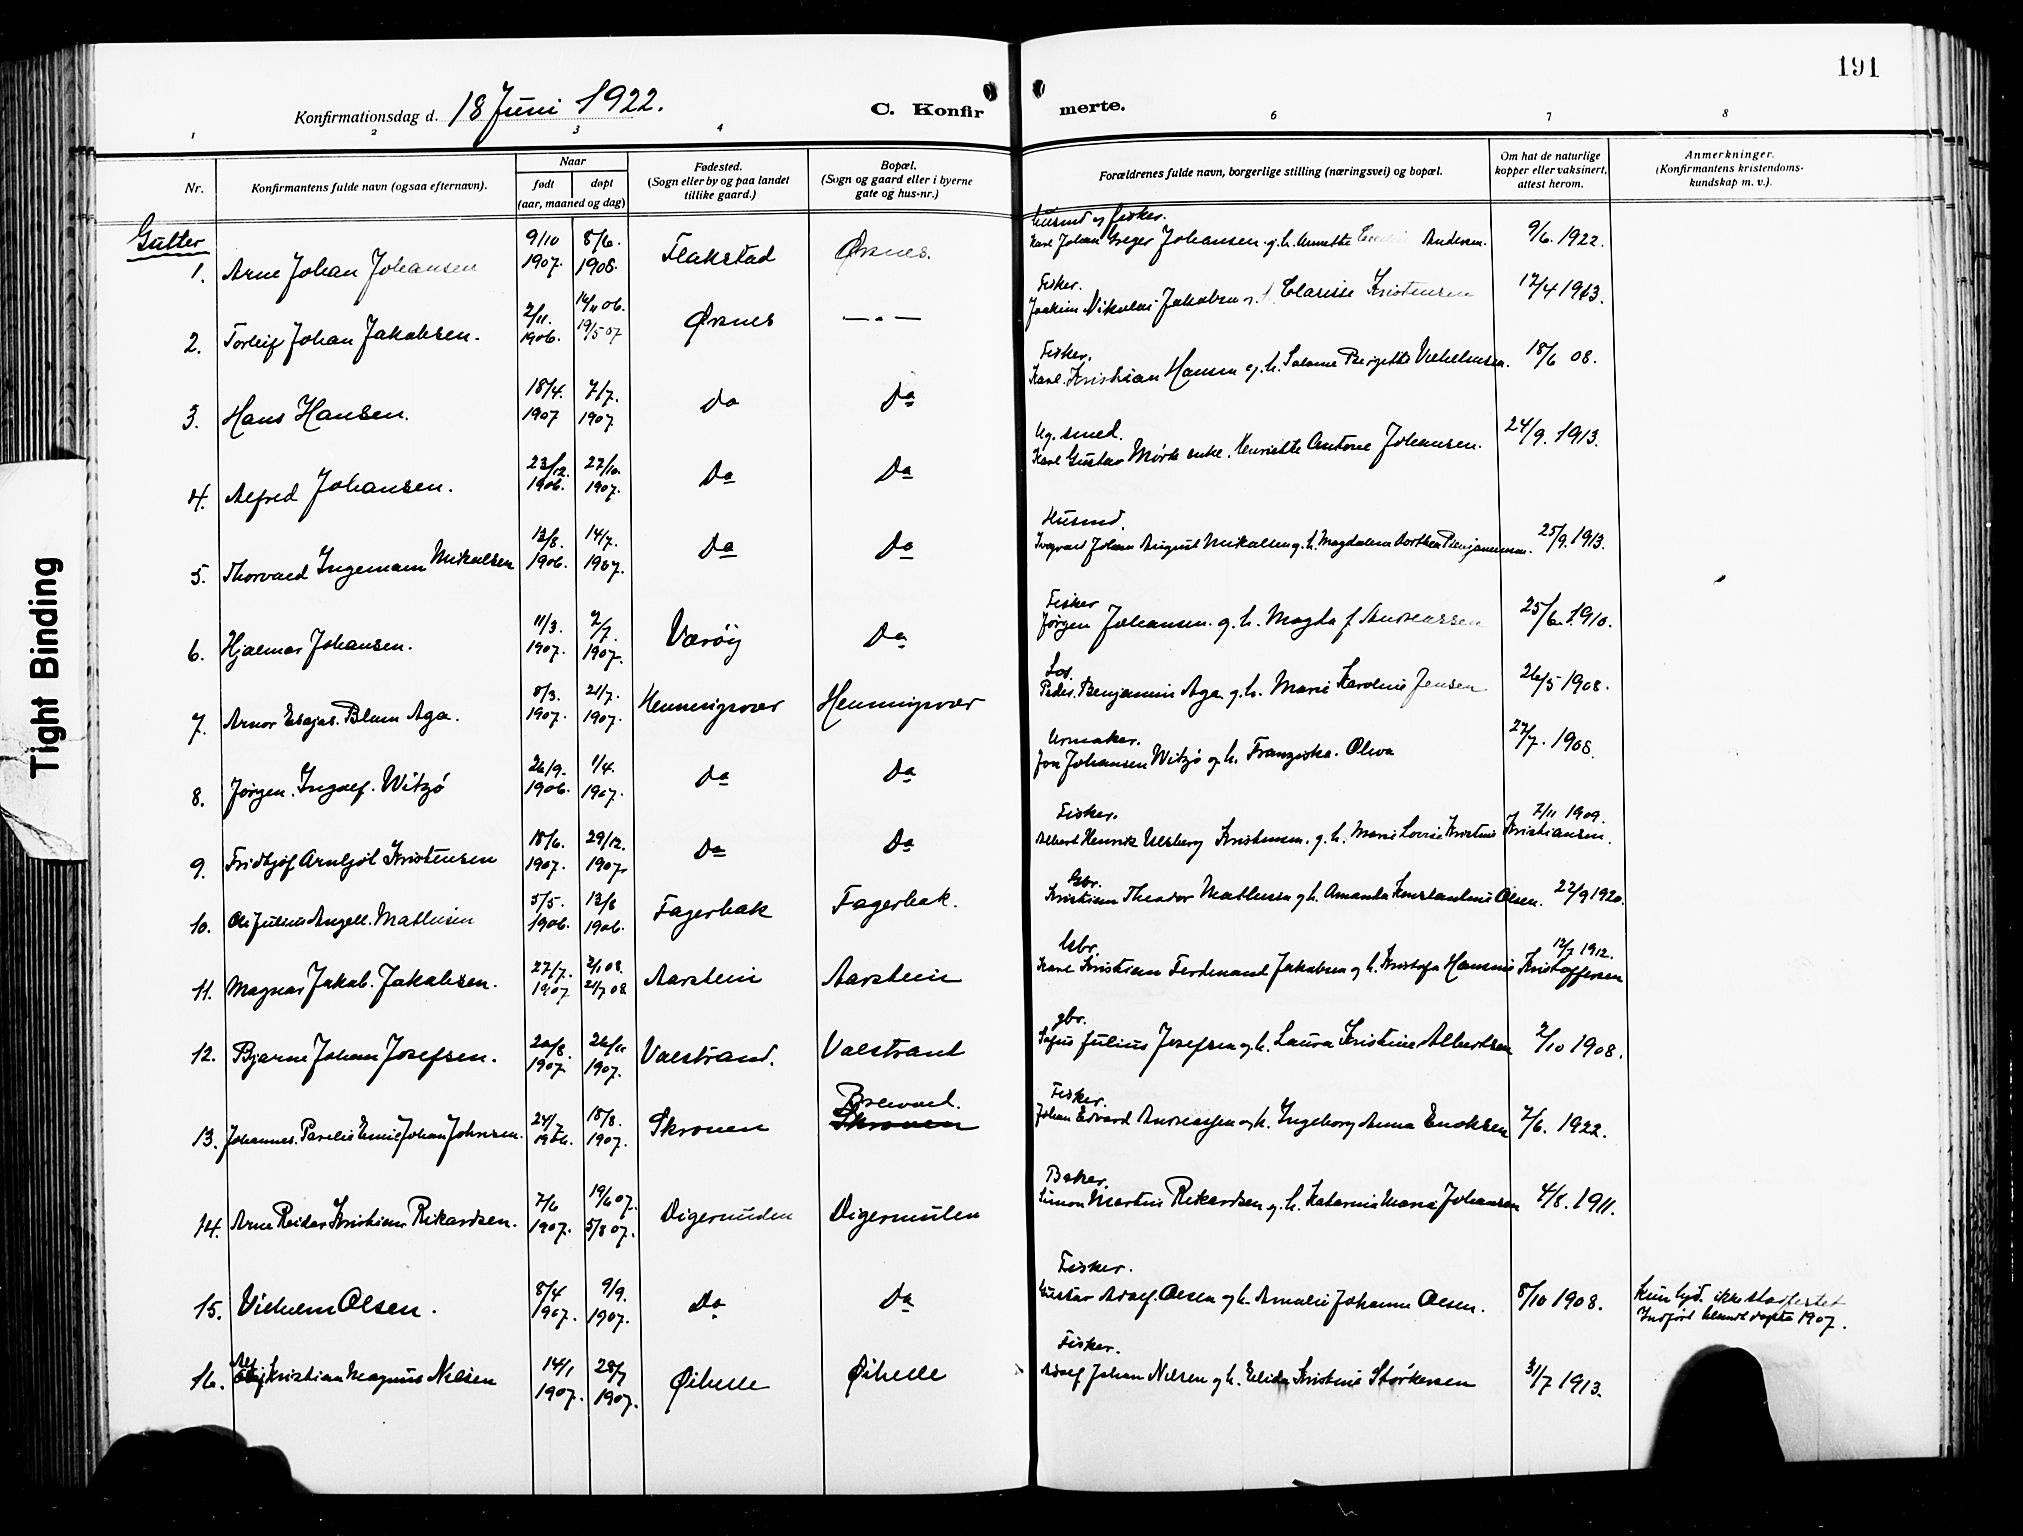 191
Konfirmationsdag d. 18 Juni 1922. C. Konfirmerte.
1 2 3 4 6 7 8
Nr. Konfirmantens fulde navn (ogsaa efternavn). Naar født døpt (aar, maaned og dag) Fødested. (Sogn eller by og paa landet tillike gaard.) Bopæl. (Sogn og gaard eller i byerne gate og hus-nr.) Forældrenes fulde navn, borgerlige stilling (næringsvei) og bopæl. Om hat de naturlige kopper eller vaksinert, attest herom. Anmerkninger. (Konfirmantens kristendoms-kundskap m. v.).
Gutter
1. Arne Johan Johansen 9/10 1907. 8/6. 1908. Flakstad Øksnes. Husmd og fisker. Karl Johan Greger Johansen. g. h. Annette Andersen. 9/6. 1922.
2. Torleif Johan Jakobsen. 2/11. 1906. 14/11 06. 19/5 07 Øksnes — " — Fisker. Joakim Nikolai Jakobsen Clarisse Kristensen 17/4 1913.
3. Hans Hansen. 18/4. 1907 7/7. 1907 Do Do Fisker. Karl. Kristian Hansen g. h. Salome Bergette Vilhelmsen. 18/6 08.
4. Alfred Johansen. 23/12. 1906. 27/10. 1907. Do Do Ug. smed. Karl Gustav Mørk enke. Henriette Antone Johansen. 24/9. 1913.
5. Thorvald Ingemann Mikalsen 13/8. 1906. 14/7. 1907. Do Do Husmd. Ingvald Johan August Mikalsen g. h. Magdalena Dorthea Benjaminsen. 25/9. 1913.
6. Hjalmar Johansen. 11/3. 1907. 7/7. 1907. Værøy Do Fisker Jørgen Johansen. g. h. Magda f Andreassen 25/6. 1910.
7. Arnor Esajas. Blum Aga. 8/3. 1907. 21/7. 1907. Henningsvær Henningsvær Los. Peder. Benjamin Aga g. h. Marie Karoline Jensen 26/5 1908.
8. Jørgen. Ingolf. Witzø 26/9. 1906. 1/4. 1907. Do Do Urmaker. Jon Johansen Witzø g. h. Franziska. Oliva 27/7. 1908.
9. Fridtjof Arnljot Kristensen 18/6. 1907. 29/12. 1907. Do Do Fisker. Albert Henrik Ulsberg Kristensen. g. h. Marie Lovise Kristine Kristiansen. 7/11 1909.
10. Ole Julius Angell. Mathisen 5/5. 1906. 12/8 1906. Fagerbak Fagerbak. Gbr. Kristian Theodor Mathisen g. h. Amanda Konstantine Olsen. 22/9 1920.
11. Magnar Jakob. Jakobsen. 27/7. 1907 2/1 08. 21/7 08 Aarstein Aarstein Gbr. Karl Kristian Ferdinand Jakobsen g. h. Kristofa Hansine Kristoffersen 12/7 1912.
12. Bjarne Johan Josefsen. 20/8. 1907. 26/11 1907. Valstrand. Valstrand gbr. Julius Josefsen g. h. Laura Kristine Albertsen 2/10 1908.
13. Johannes. Parelis Emil Johan Johnsen. 24/7 1906. 18/8. 1907. Skroven Skroven Fisker. Johan Edvard Andreassen g. h. Ingeborg Anna Enoksen 7/6. 1922.
14. Arne Reidar Kristians Rikardsen. 7/6 1907. 19/6 07. 5/8 07. Digermulen Digermulen Baker. Simon Martin Rikardsen g. h. Katarina Maria Johansen 4/8. 1911.
15. Vilhelm Olsen. 8/4 1907. 9/9. 1907. Do Do Fisker. Gustav Adolf. Olsen g. h. Amalie Johanna Olsen. 8/10 1908. Kun hjd. ikke stadfestet Indført blandt døpte 1907.
16. Kristian Magnus Nilsen 14/1 1907. 28/7 1907. Øihelle Øihelle Fisker. Adolf Johan Nilsen g. h. Elida Kristine Størkersen 31/7 1913.
Tight Binding